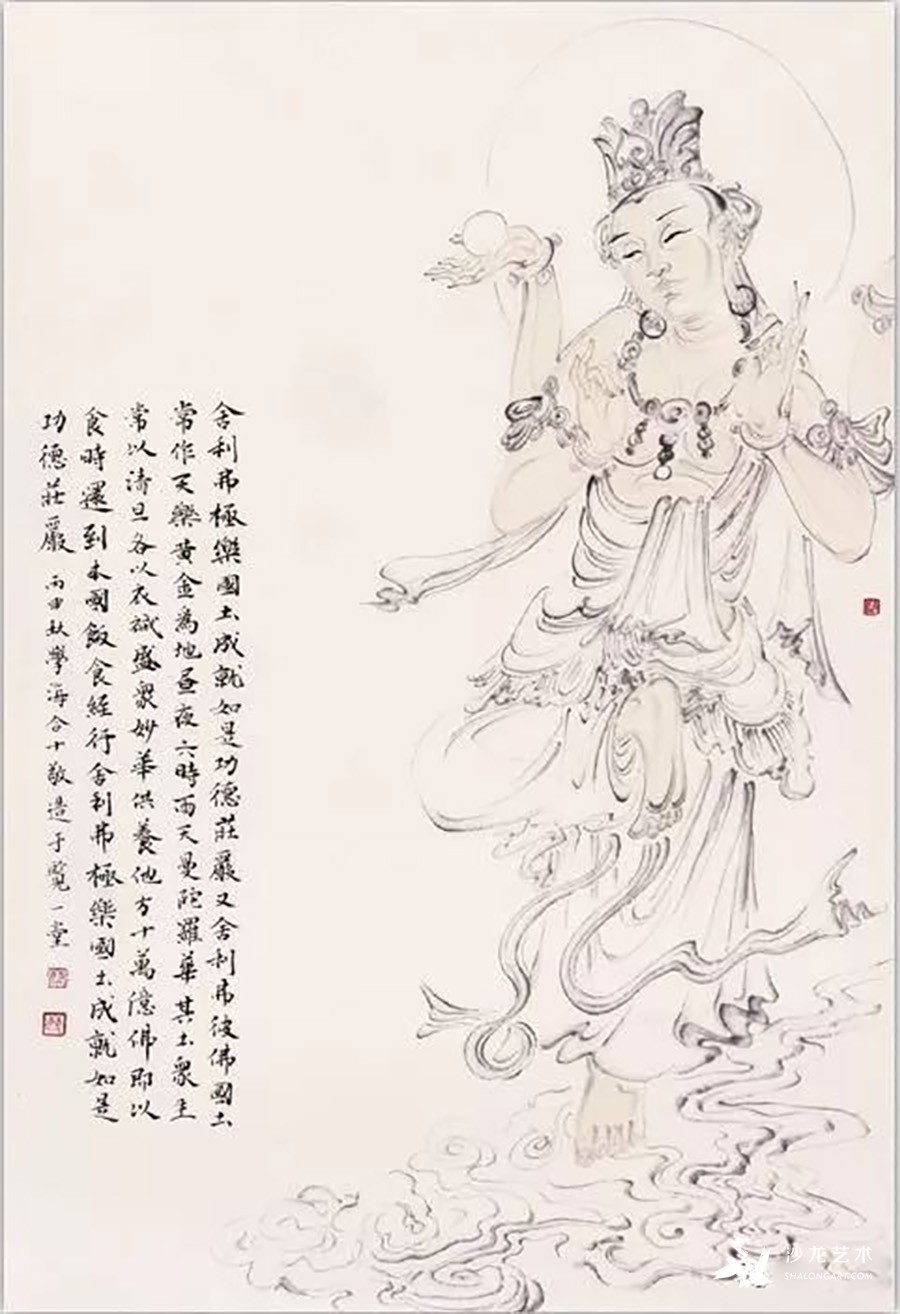 舍利弗極樂國土成就如是功德莊嚴又舍利弗彼佛國土
常作天樂黃金為地晝夜六時雨天曼陀羅華其土眾生
常以清旦各以衣祴盛眾妙華供養他方十萬億佛即以
食時還到本國飯食經行舍利弗極樂國土成就如是
功德莊嚴 丙申秋學海合十敬造于覽一堂
沙龙艺术
SHALONGART.COM